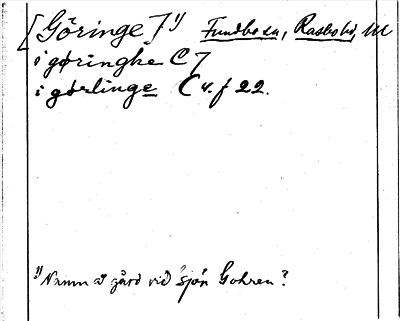 [Göringe]¹⁾ Fundbo sn, Rasbo hd, Ul
i gøringhe C 7
i gørlinge C 4. f 22.
¹⁾ Namn å gård vid sjön Gohren?